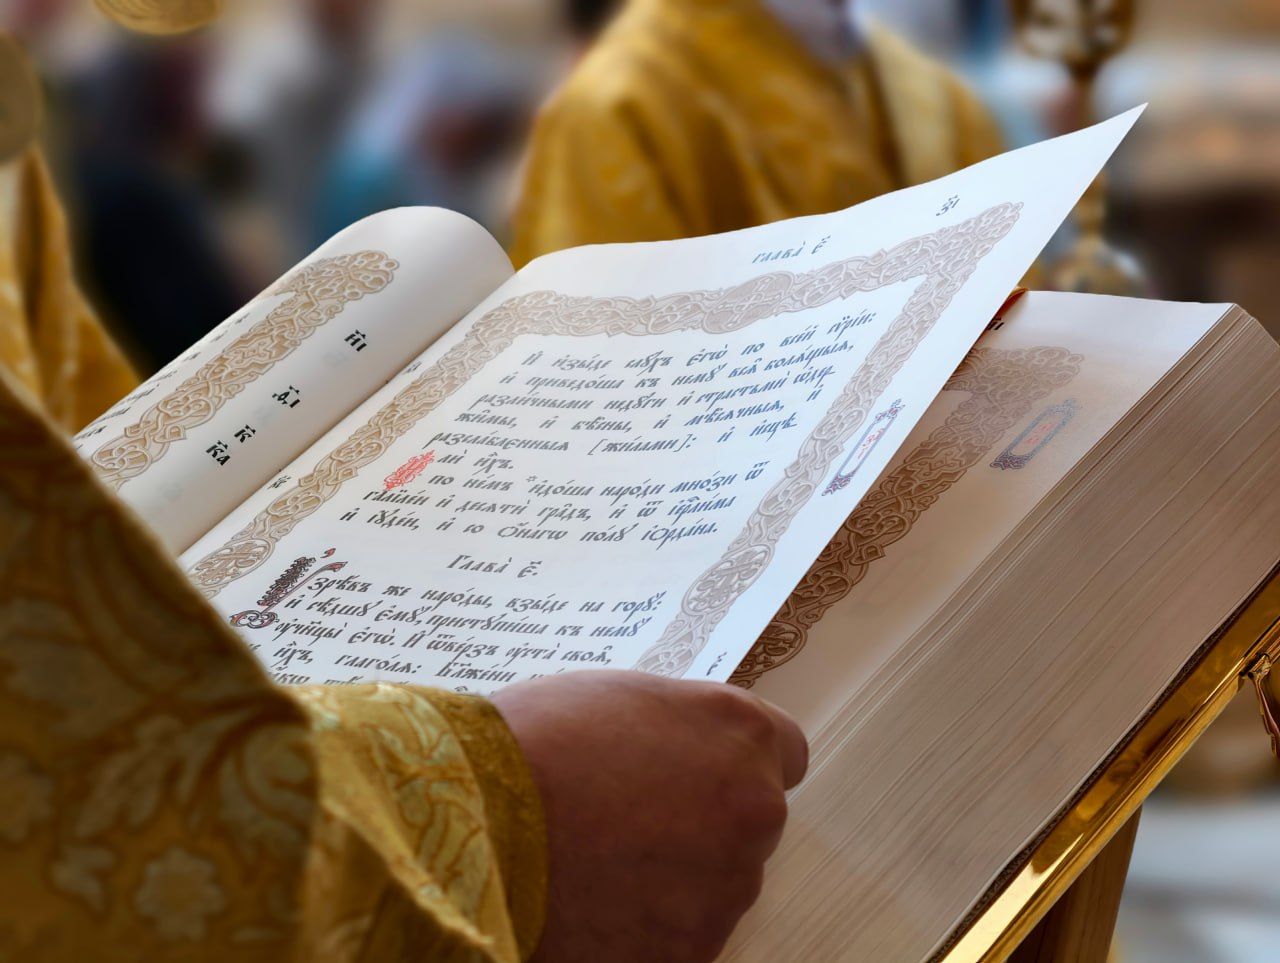 к҃і
д҃і
к҃
к҃а
глава̀ є҃
з҃і
И҆ и҆зы́де слꙋ́хъ є҆гѡ̀ по все́й сѷрі́и:
и҆ приведо́ша къ немꙋ̀ всѧ̑ болѧ́щыѧ,
разли́чными недꙋ̑ги и҆ страстьмѝ ѡ҆держи̑мы,
и҆ бѣ̑сны, и҆ мѣ́сѧчныѧ, и҆
разсла́блєнныѧ [жи́лами]: и҆ и҆сцѣлѝ и҆̀хъ.
по не́мъ и҆до́ша наро́ди мно́зи ѿ
галїле́и и҆ десѧтѝ гра̑дъ, и҆ ѿ і҆ерⷭ҇ли́ма
и҆ і҆ꙋде́и, и҆ со ѻ҆́нагѡ по́лꙋ і҆ѻрда́на.
Глава̀ є҃.
Оу҆зрѣ́въ же наро́ды, взы́де на горꙋ̀:
и҆ сѣ́дшꙋ є҆мꙋ̀, пристꙋпи́ша къ немꙋ̀
ᲂу҆чн҃цы̀ є҆гѡ̀. И҆ ѿве́рзъ ᲂу҆ста̀ своѧ̑,
и҆̀хъ, глаго́лѧ: Бл҃же́ни